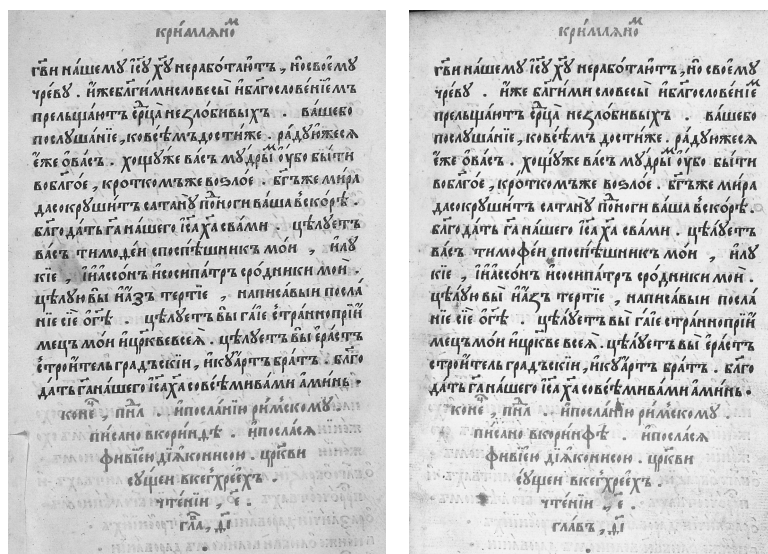 кри́млѧноⷨ
гв҃и на́шемꙋ і҆с҃ꙋ хр҃ꙋ нерабо́таютъ , носвоемꙋ
чре́вꙋ . и҆жебл҃ги́мисловесы̀ и҆бл҃гослове́нїемъ
прельща́ютъ срⷣца̀ незло́бивыхъ . ва́шебо
послꙋша́нїе , ковсѣ́мъдости́же . ра́дꙋюжесѧ
є҆́же ѡ҆ва́съ . хощꙋ́же ва́съ мꙋ́дрыⷨ ᲂу҆́бо бы́ти
воблго́е , кро́ткомъже воѕло́е . бг҃ъже ми́ра
дасокрꙋши́тъ сатанꙋ̀ поⷣно́ги ва́ша вско́рѣ .
блгода́ть га҃ на́шего і҆с҃а ха҃ сва́ми . цѣлꙋ́етъ
ва́съ тимоѳе́и споспѣ́шникъ мо́и , и҆лꙋ
кі́е , и҆і҆ассо́нъ и҆сосипа́тръ сро́дники моѝ .
цѣлꙋ́ю вы̀ и҆а҆́зъ те́ртїе , написа́выи посла́
нїе сїѐ ѡ҆гⷭ҇ѣ цѣлꙋ́етъ вы̀ га́їе стра́нноприі́
мецъ мо́и и҆црⷦ҇ве всеѧ̀ . цѣлꙋ́етъ вы̀ є҆ра́стъ
строи́тель гра́дъскїи , и҆кꙋа́ртъ бра́тъ . бл҃го
да́ть га҃ на́шего і҆с҃а ха҃ совсѣ́мива́ми а҆ми́нь .
коне́ⷰ , пи҃л . и҆посла́нїю ри́мскомꙋ
пи́сано вкори́нѳѣ . и҆посла́сѧ
фиві́ею дїѧ́конисою . црⷦ҇ви
сꙋ́щеи вкегхре́ехъ .
чте́нїи , е҃ .
гла҃ , д҃і
кри́млѧноⷨ
гв҃и на́шемꙋ і҆с҃ꙋ хр҃ꙋ нерабо́таютъ , но своемꙋ́
чре́вꙋ . и҆́же бл҃ги́ми словесы̀ и҆бл҃гослове́нїеⷨ
прельща́ютъ срⷣца̀ незло́бивыхъ . ва́шебо
послꙋша́нїе , ковсѣ́мъ дости́же . ра́дꙋюжесѧ
є҆́же ѡ҆ва́съ . хощꙋ́же ва́съ мꙋ́дрыⷨ ᲂу҆́бо бы́ти
воблго́е , кро́ткомъже воѕло́е . бг҃ъже ми́ра
дасокрꙋши́тъ сатанꙋ̀ поⷣно́ги ва́ша вско́рѣ .
блгода́ть га҃ на́шего і҆с҃а ха҃ сва́ми . цѣлꙋ́етъ
ва́съ тимофе́и споспѣ́шникъ мо́и , и҆лꙋ
кі́е , и҆і҆ассо́нъ и҆сосипа́тръ сро́дники моѝ .
цѣлꙋ́ю вы̀ и҆а҆́зъ те́ртїе , написа́выи посла́
нїе сїѐ ѡ҆гⷭ҇ѣ . цѣлꙋ́етъ вы̀ га́їе стра́нноприі́
мецъ мо́и и҆црⷦ҇ве всеѧ̀ . цѣлꙋ́етъ вы̀ є҆ра́стъ
строи́тель гра́дъскїи , и҆кꙋа́ртъ бра́тъ . бл҃го
да́ть га҃ на́шего і҆с҃а ха҃ совсѣ́мива́ми а҆ми́нь .
коне́ⷰ , пи҃л . и҆посла́нїю ри́мскомꙋ
пи́сано вкори́нфѣ . и҆посла́сѧ
фиві́ею дїѧ́конисою . црⷦ҇ви
сꙋ́щеи вкегхре́ехъ .
чте́нїи , е҃ .
гла́въ , д҃і